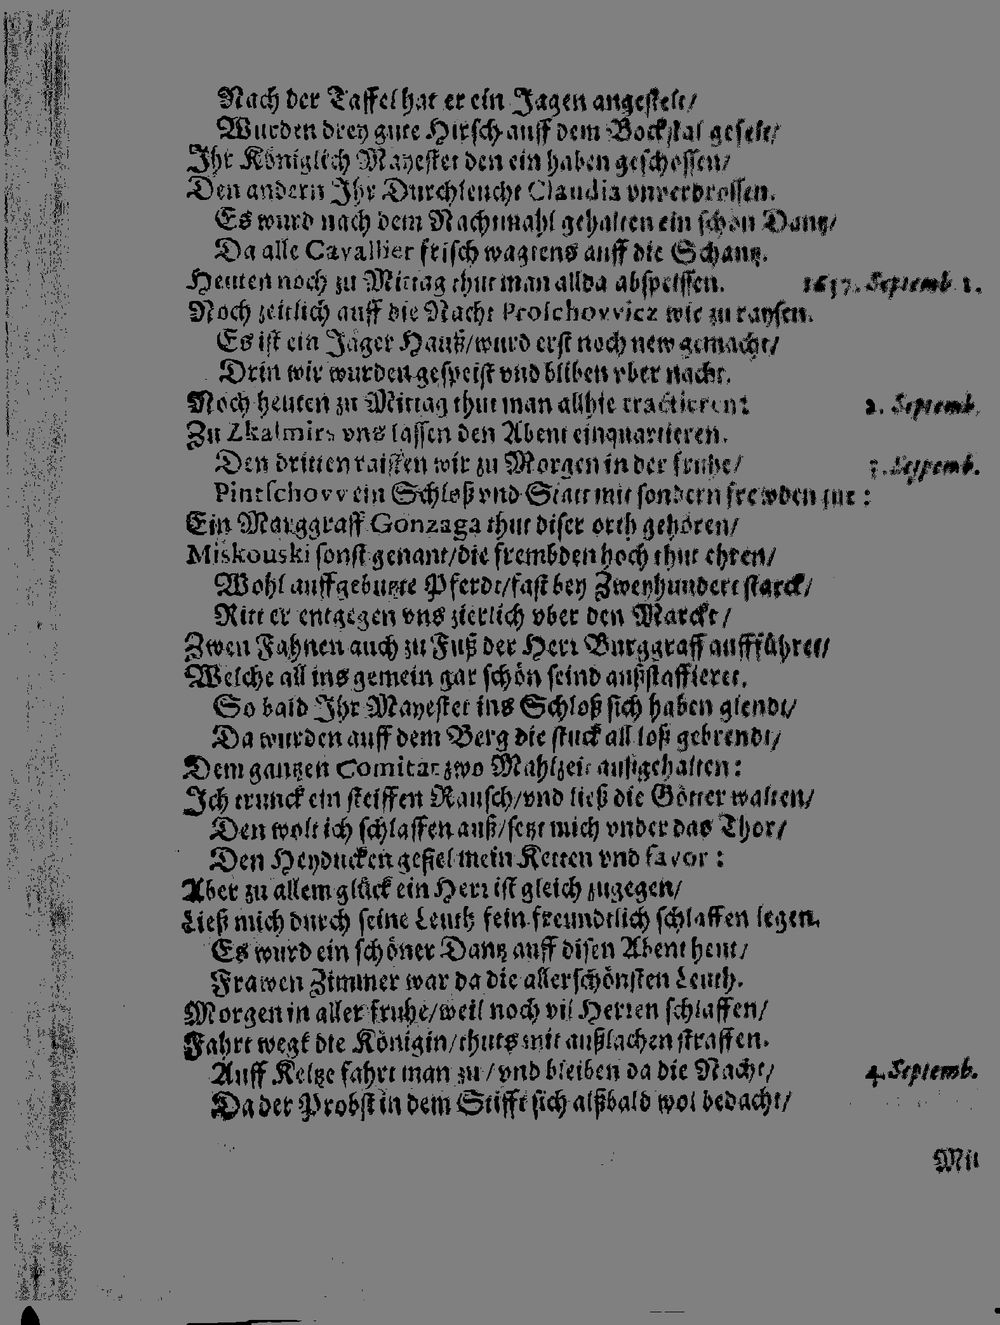 Nach der Taffel hat er ein Jagen angestelt/
Wurden drey gute Hirsch auff dem Bockstal gefelt/
Ihr Königlich Mayestet den ein haben geschossen/
Den andern Ihr Durchleucht Claudia vnverdrossen.
Es wurd nach dem Nachtmahl gehalten ein schön Dantz/
Da alle Cavallier frisch wagtens auff die Schantz.
Heuten noch zu Mittag thut man allda abspeissen. 1637. Septemb 1.
Noch zeitlich auff die Nacht Proschovvicz wir zu raysen.
Es ist ein Jäger Hauß/wurd erst noch new gemacht/
Drin wir wurden gespeist vnd bliben vber nacht.
Noch heuten zu Mittag thut man allhie tractieren: 2. Septemb.
Zu Zkalmirs vns lassen den Abent einquartieren.
Den dritten raisten wir zu Morgen in der fruhe/ 3. Seppemb.
Pintschovv ein Schloß vnd Statt mit sondern frewden zur :
Ein Marggraff Gonzaga thut diser orth gehören/
Miskouski sonst genant/die frembden hoch thut ehren/
Wohl auffgebutzte Pferdt/fast bey Zweyhundert starck/
Ritt er entgegen vns zierlich vber den Marckt/
Zwen Fahnen auch zu Fuß der Herr Burggraff auffführet/
Welche all ins gemein gar schön seind außstaffieret.
So bald Ihr Mayestet ins Schloß sich haben glendt/
Da wurden auff dem Berg die stuck all loß gebrendt/
Dem gantzen Comitat zwo Mahlzeit außgehalten:
Ich trunck ein steiffen Rausch/vnd ließ die Götter walten/
Den wolt ich schlaffen auß/setzt mich vnder das Thor/
Den Heyducken gefiel mein Ketten vnd favor :
Aber zu allem glück ein Herr ist gleich zugegen/
Ließ mich durch seine Leuth fein freundtlich schlaffen legen.
Es wurd ein schöner Dantz auff disen Abent heut/
Frawen Zimmer war da die allerschönsten Leuth.
Morgen in aller fruhe/weil noch vil Herren schlaffen/
Fahrt wegk die Königin/thuts mit außlachen straffen.
Auff Keltze fahrt man zu/vnd bleiben da die Nacht/ 4. Septemb.
Da der Probst in dem Stifft sich alßbald wol bedacht/
Mit